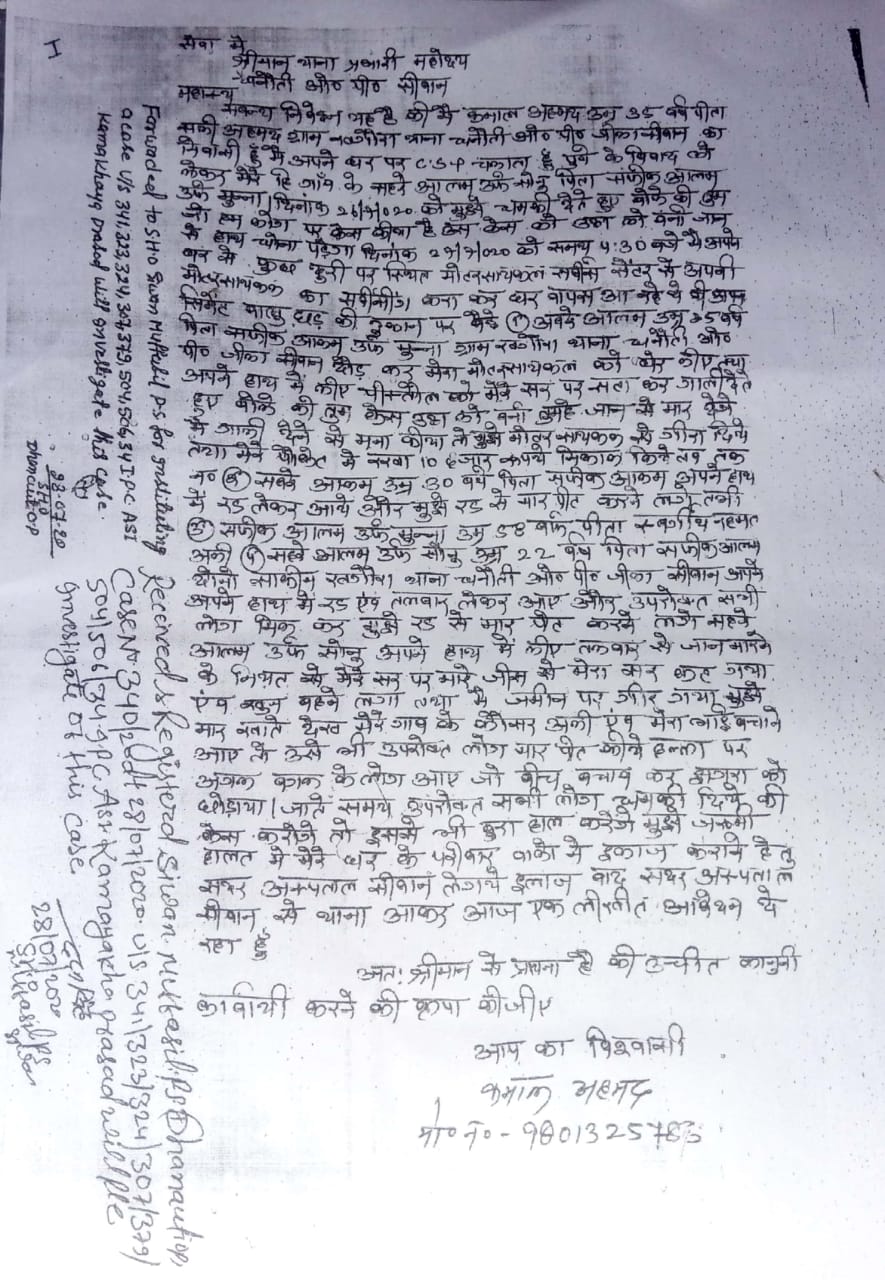 सेवा में
श्रीमान थाना प्रभारी महोदय
धनौती ओ० पी० सीवान
महाशय
निवेदन यह है की मैं कमाल अहमद उम्र 35 वर्ष पिता
अहमद ग्राम थाना धनौती ओ० पी० जीला सीवान का
निवासी हुँ मैं अपने घर पर C.S.P चलाता हुँ पुर्व के विवाद को
लेकर मेरे हि गाँव के सहवे आलम उर्फ सोनु पिता सफीक आलम
उर्फ मुन्ना दिनांक 26/7/020 को मुझे धमकी देते हुए बोले की तुम
जो हम लोग पर केस कीया है उस केस को उठा लो वर्ना जान
से हाथ धोना पड़ेगा दिनांक 27/7/020 को समय 4:30 बजे मैं अपने
घर से कुछ दुरी पर स्थित मोटरसायकल सर्वीस सेंटर से अपनी
मोटरसायकल का सर्वीसींग करा कर घर वापस आ रहे थे की
सिमेंट बालु छड़ की दुकान पर बैठे ① आलम उम्र 25 वर्ष
पिता सफीक आलम उर्फ मुन्ना ग्राम थाना धनौती ओ०
पी० जीला सीवान दौड़ कर मेरा मोटरसायकल को घेर लीए तथा
अपने हाथ में लीए पीस्तौल को मेरे सर पर सटा कर गाली देते
हुए बोले की तुम केस उठा लो वर्ना तुम्हे जान से मार देंगे
मैं गाली देने से मना कीया तो मुझे मोटर सायकल से गीरा दिये
तथा मेरे पौकेट में रखा 10 हजार रूपये निकाल लिये तब तक
न० ② सबवे आलम उम्र 30 वर्ष पिता सफीक आलम अपने हाथ
में रड लेकर आये और मुझे रड से मार पीट करने लगे तभी
③ सफीक आलम उर्फ मुन्ना उम्र 58 वर्ष पीता स्वर्गीय रहमत
अली ④ सहवे आलम उर्फ सोनु उम्र 22 वर्ष पिता सफीक आलम
दोनो साकीन थाना धनौती ओ० पी० जीला सीवान अपने
अपने हाथ में रड एंव तलवार लेकर आए और उपरोक्त सभी
लोग मिल कर मुझे रड से मार पीट करने लगे सहवे
आलम उर्फ सोनु अपने हाथ में लीए तलवार से जान मारने
के नियत से मेरे सर पर मारे जीस से मेरा सर कट गया
एंव खुन बहने लगा तथा मैं जमीन पर गीर गया मुझे
मार खाते देख मेरे गाव के कौसर अली एंव मेरा भाई बचाने
आए तो उसे भी उपरोक्त लोग मार पीट कीये हल्ला पर
अगल बगल के लोग आए जो बीच बचाव कर झगरा को
छोड़ाया। जाते समय उपरोक्त सभी लोग धमकी दिये की
केस करोगे तो इससे भी बुरा हाल करेंगे मुझे जख्मी
हालत में मेरे घर के परीवार वालो ने इलाज कराने हेतु
सदर अस्पताल सीवान लेगये इलाज बाद सदर अस्पताल
सीवान से थाना आकर आज एक लीखीत आवेदन दे
रहा हुँ
अतः श्रीमान से प्राथना है की उचीत कानुनी
कार्वायी करने की कृपा कीजीए
आप का विश्वासी
कमाल अहमद
मो० न० - 9801325783
Forwarded to SHO Siwan Muffasil PS for instituting
a case U/s 341,323,324,307,379,504,506,34 I.P.C ASI
Kamakhaya Prasad will investigate this case.
28-07-20
SHO
Dhanauti OP
Received & Registered Siwan. Muffasil. P.S (Dhanauti OP)
Case No 340/20 dt 28/07/2020. U/S 341/323/324/307/379/
504/506/34 IPC ASI Kamayakha prasad will ple
investigate of this case
28/07/2020
SHO
Muffasil PS
Siwan